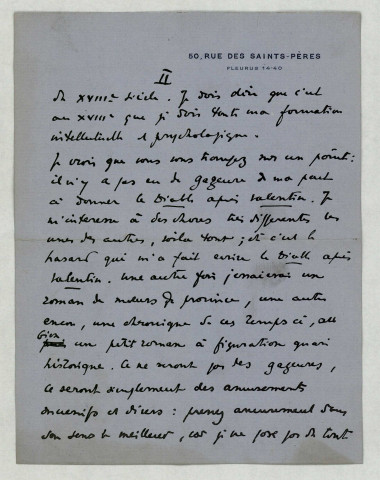 50, RUE DES SAINTS-PÈRES
FLEURUS 14-40
II
du XVIIIe siècle. Je dois dire que c'est
au XVIIIe que je dois toute ma formation
intellectuelle & psychologique.
Je crois que vous vous trompez sur un point :
il n'y a pas eu de gageure de ma part
à donner le Diable après Valentin. Je
m'intéresse à des choses très différentes les
unes des autres, voilà tout, et c'est le
hasard qui m'a fait écrire le Diable après
Valentin. Une autre fois j'essaierai un
roman de mœurs de province, une autre
encore, une chronique de ces temps-ci, ou
bien un petit roman à figuration quasi
historique. Ce ne seront pas des gageures,
ce seront simplement des amusements
successifs et divers : prenez amusement dans
son sens le meilleur, car je ne fais pas du tout